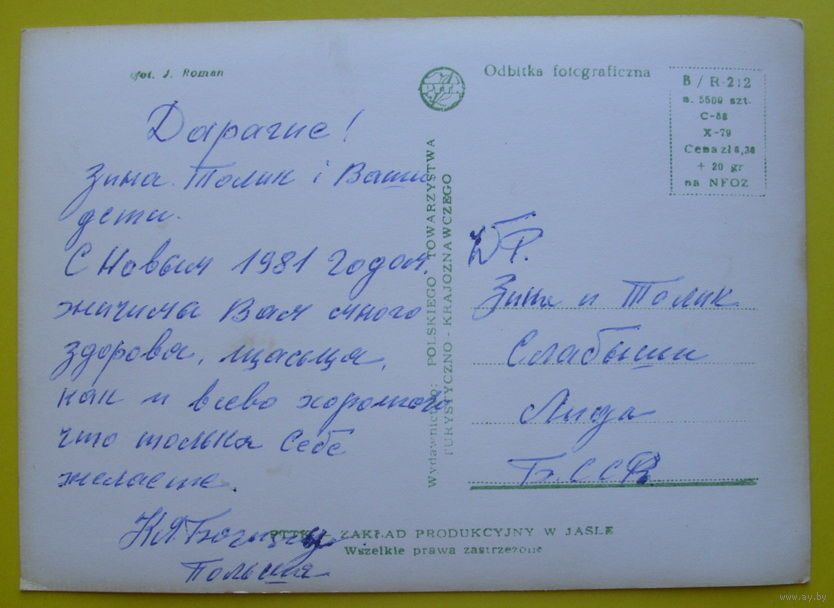 fot. J. Roman
Дарагие!
Зина. Толик і Ваши
дети.
С Новым 1981 годом,
жичима Вам много
здоровя, щасьця,
как и всево хорошого
что только Себе
желаете.
Польша
Wydawnictwo: POLSKIEGO TOWARZYSTWA
TURYSTYCZNO - KRAJOZNAWCZEGO
Odbitka fotograficzna
B / R-212
n. 5500 szt.
C-88
X-79
Cena zł 8,30
+ 20 gr
na NFOZ
Зина и Толик
Слабыши
Лида
БССР
PTTK ZAKŁAD PRODUKCYJNY W JAŚLE
Wszelkie prawa zastrzeżone
www.ay.by